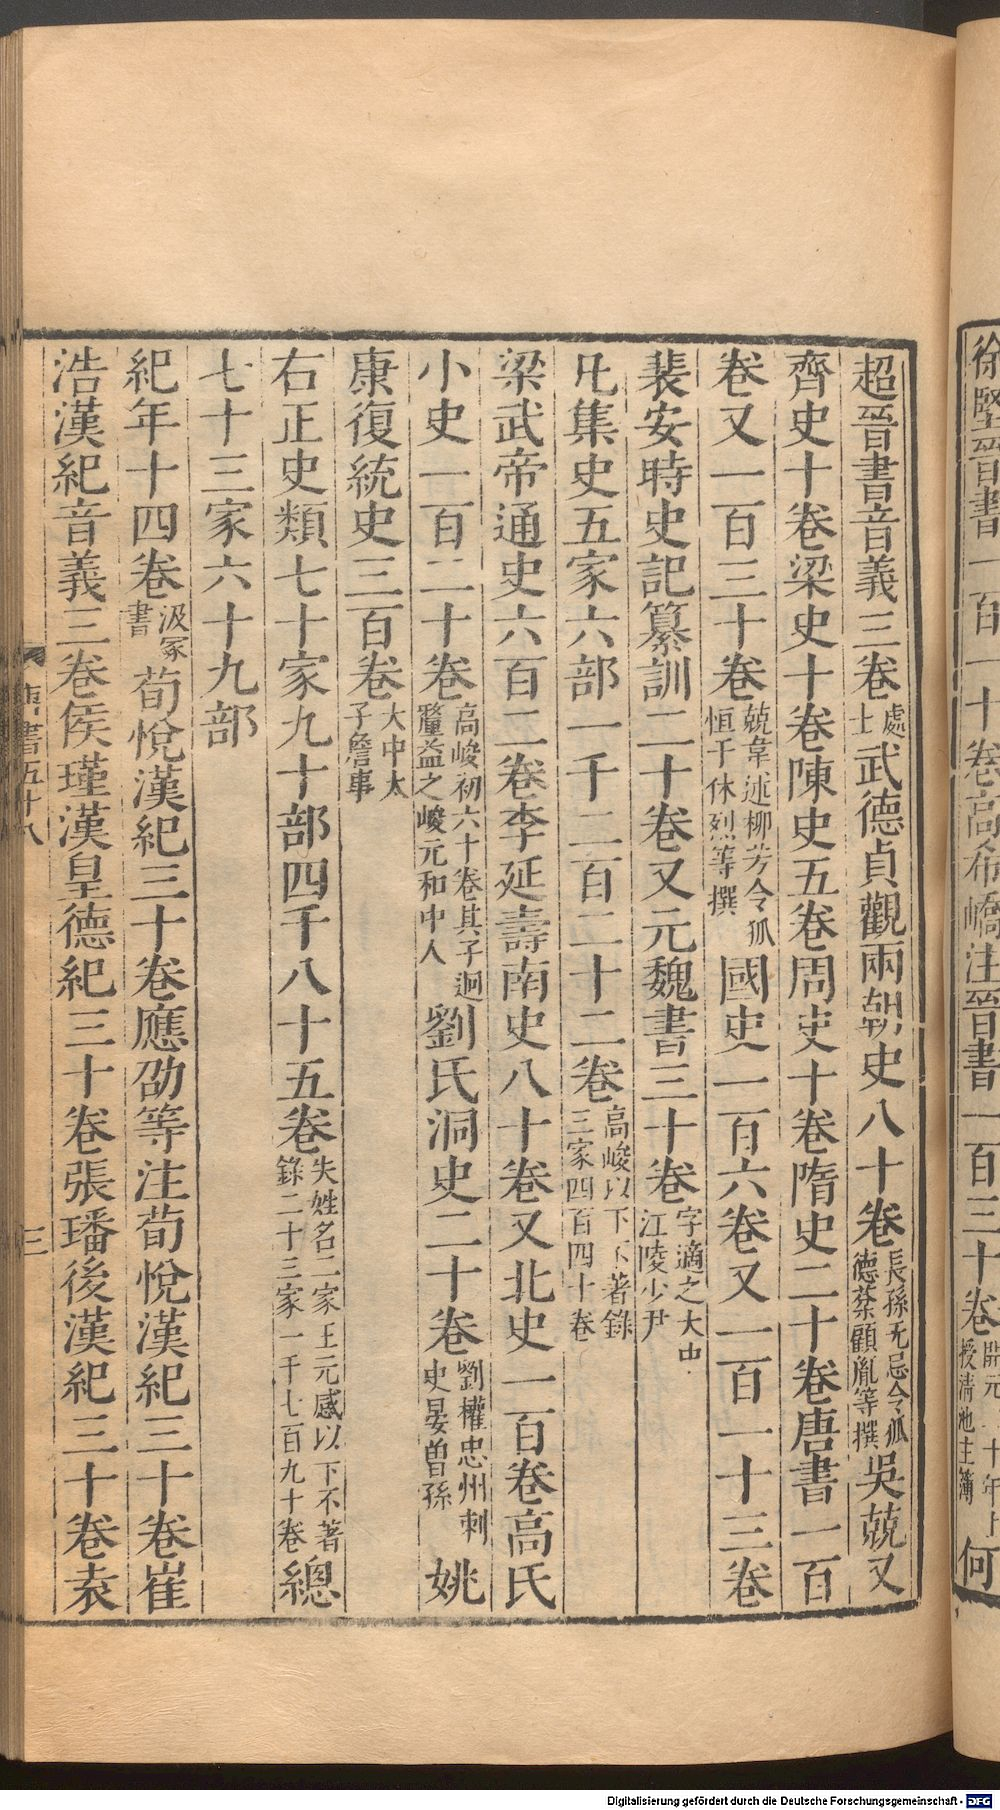 徐堅晉書一百一十卷高希嶠注晉書一百三十卷開元二十年上授清池主簿何
超晉書音義三卷處士武德貞觀兩朝史八十卷長孫无忌令狐德棻顧胤等撰吳兢又
齊史十卷梁史十卷陳史五卷周史十卷隋史二十卷唐書一百
卷又一百三十卷兢韋述柳芳令狐恒于休烈等撰國史一百六卷又一百一十三卷
裴安時史記纂訓二十卷又元魏書三十卷字適之大中江陵少尹
凡集史五家六部一千二百二十二卷高峻以下不著錄三家四百四十卷
梁武帝通史六百二卷李延壽南史八十卷又北史一百卷高氏
小史一百二十卷高峻初六十卷其子迥釐益之峻元和中人劉氏洞史二十卷劉權忠州刺史晏曾孫姚
康復統史三百卷大中太子詹事
右正史類七十家九十部四千八十五卷失姓名二家王元感以下不著錄二十三家一千七百九十卷總
七十三家六十九部
紀年十四卷汲冢書荀悅漢紀三十卷應劭等注荀悅漢紀三十卷崔
浩漢紀音義三卷侯瑾漢皇德紀三十卷張璠後漢紀三十卷袁
唐書五十八
三
Digitalisierung gefördert durch die Deutsche Forschungsgemeinschaft - DFG